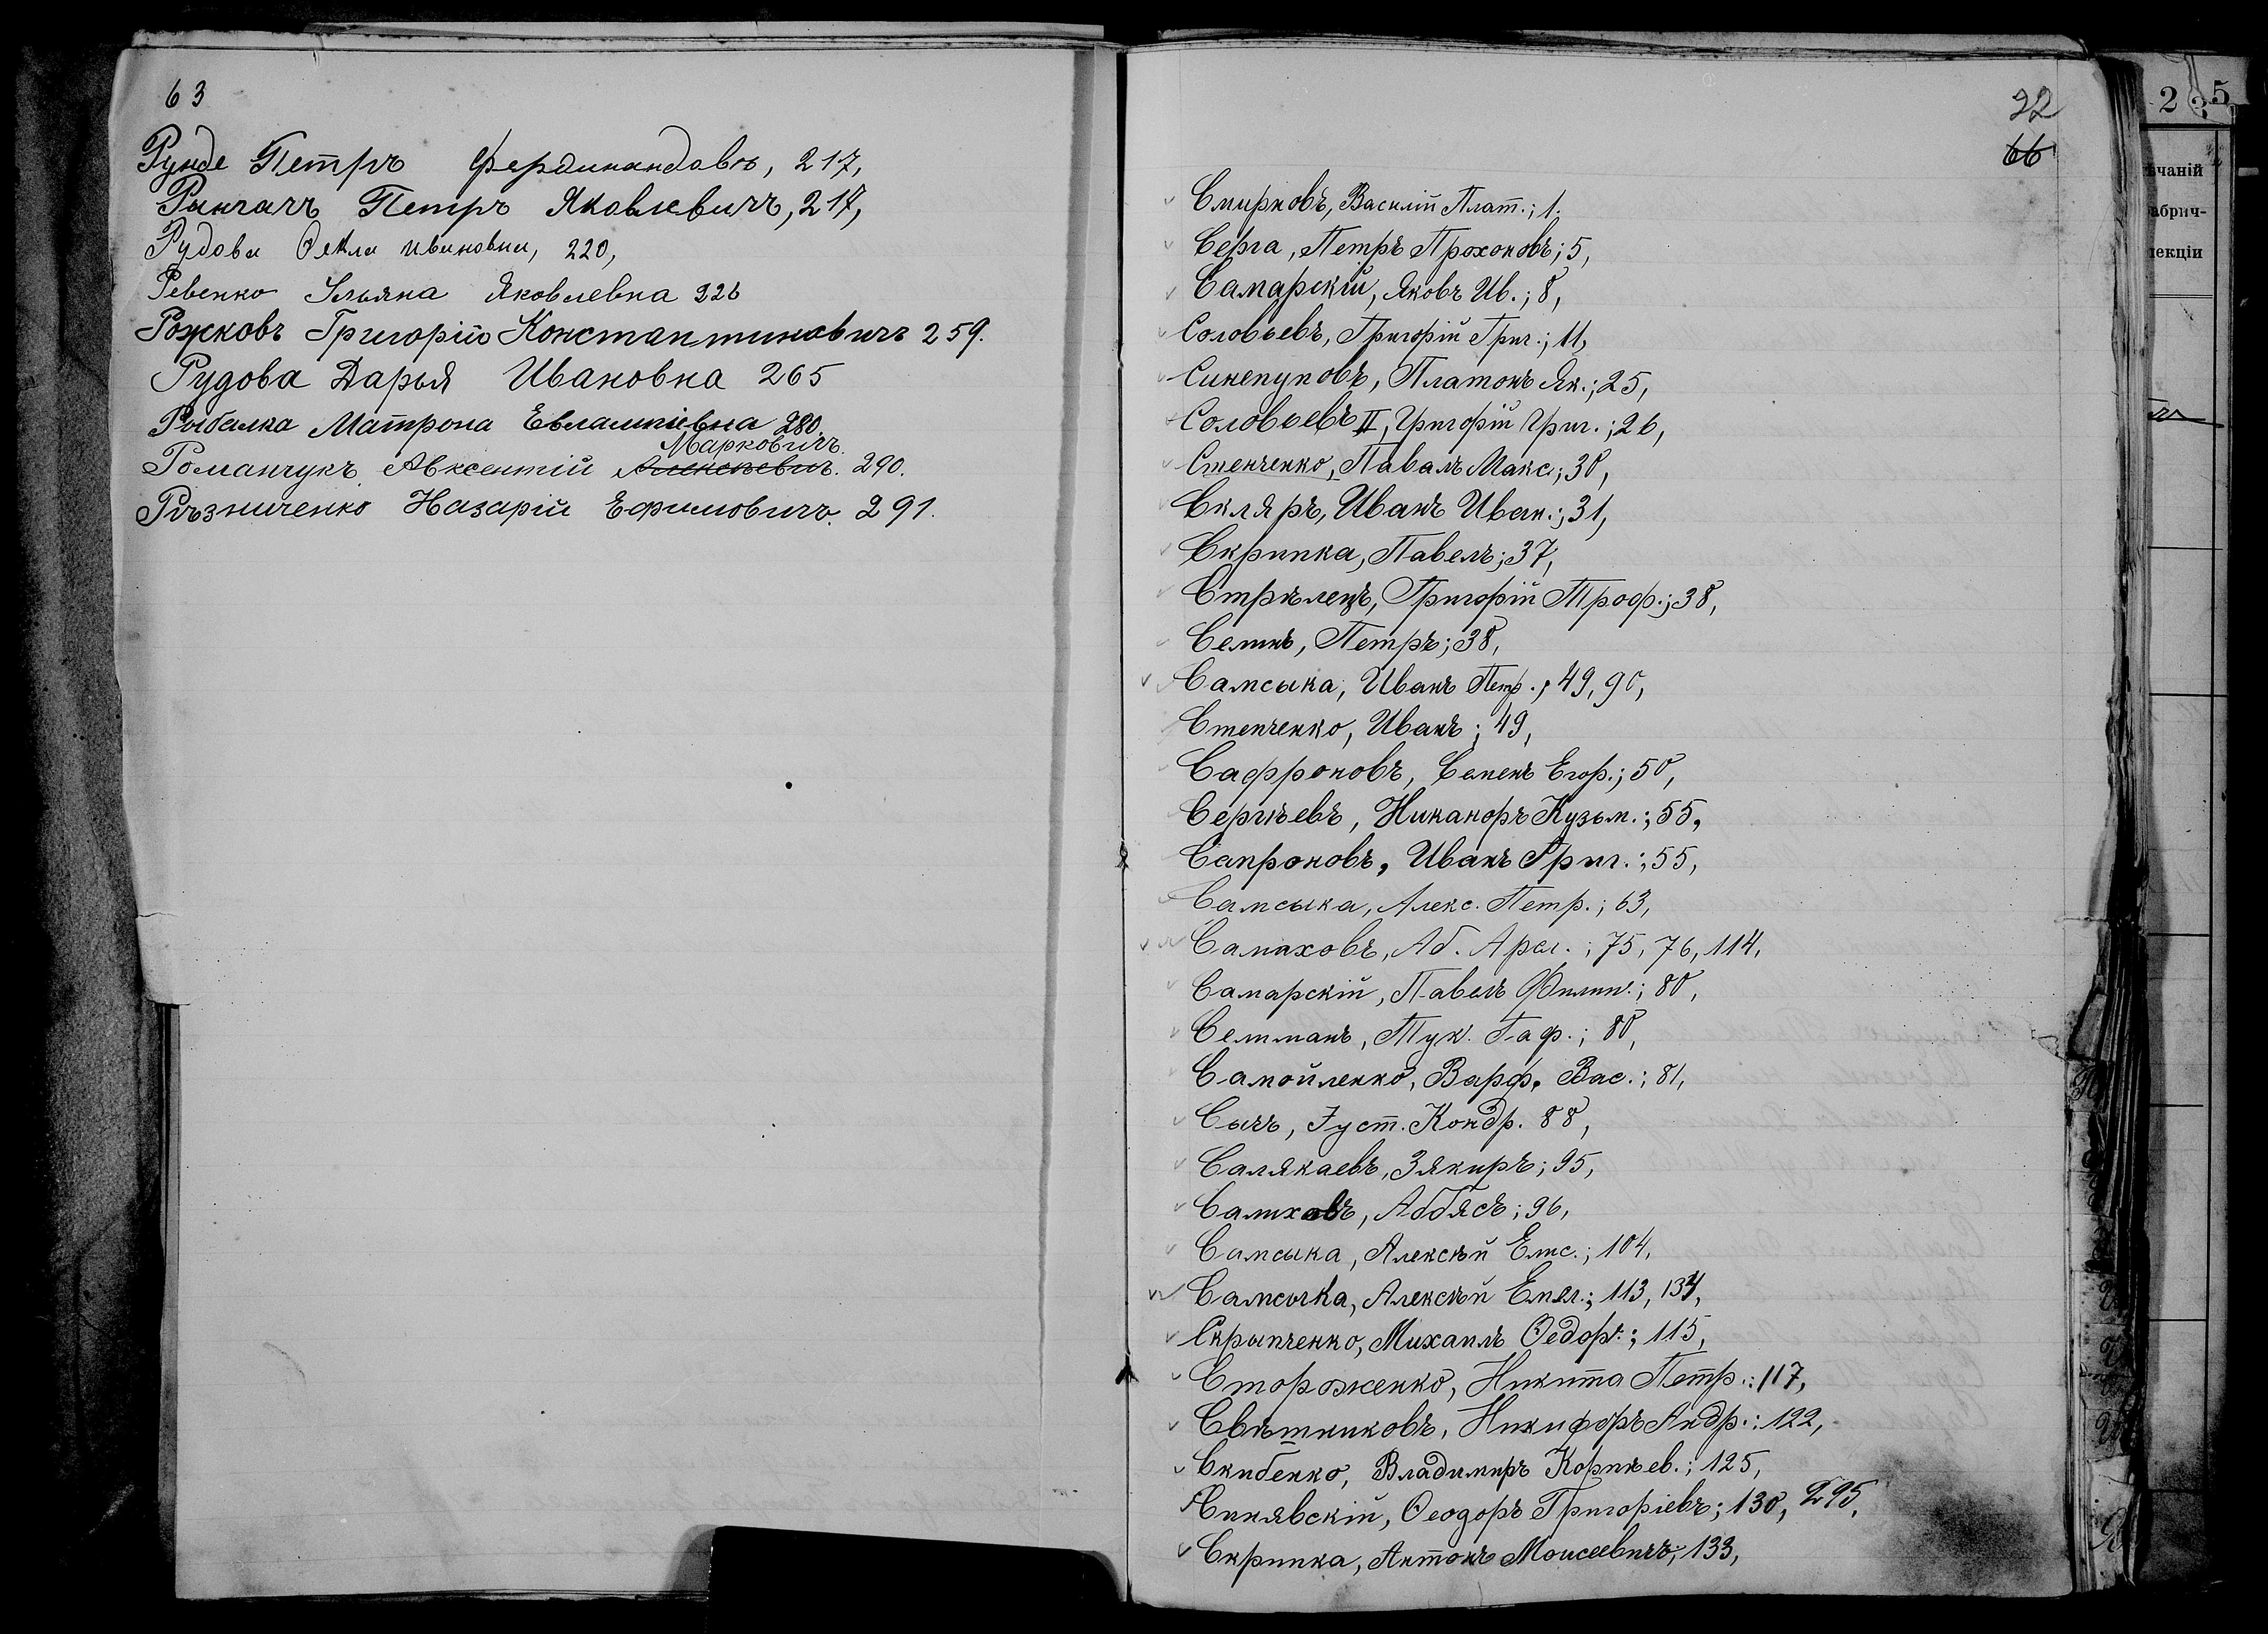 63
Рунде Петръ Фердинандовъ, 217,
Рынгачъ Петръ Яковлевичъ, 217,
Рудова Ѳекла Ивановна, 220,
Ревенко Ульяна Яковлевна 226
Рожковъ Григорій Константиновичъ 259.
Рудова Дарья Ивановна 265
Рыбалка Матрона Евлампіевна 280.
Марковичъ.
Романчукъ Авксентій Алексѣевичъ. 290.
Рѣзниченко Назарій Ефимовичъ. 291.
22
66
Смирновъ, Василій Плат.; 1.
Серга, Петръ Прохоновъ; 5,
Самарскій, Яковъ Ив.; 8,
Соловьевъ, Григорій Григ.; 11,
Синепуповъ, Платонъ Як.; 25,
Соловьевъ II, Григорій Григ.; 26,
Стенченко, Павелъ Макс.; 30,
Скляръ, Иванъ Иван.; 31,
Скрипка, Павелъ; 37,
Стрѣлецъ, Григорій Троф.; 38,
Селинъ, Петръ; 38,
Самсыка, Иванъ Петр.; 49, 90,
Степченко, Иванъ; 49,
Сафроновъ, Семенъ Егор.; 50,
Сергѣевъ, Никаноръ Кузьм.; 55,
Сапроновъ, Иванъ Григ.; 55,
Самсыка, Алекс. Петр.; 63,
Салаховъ, Аб. Арсл.; 75, 76, 114,
Самарскій, Павелъ Филип.; 80,
Селиманъ, Тук. Гаф.; 80,
Самойленко, Варф. Вас.; 81,
Сычъ, Іуст. Кондр. 88,
Салякаевъ, Зякиръ; 95,
Салиховъ, Аббясъ; 96,
Самсыка, Алексѣй Елис.; 104,
Самсычка, Алексѣй Емел.; 113, 134,
Скрыпченко, Михаилъ Ѳедор.; 115,
Стороженко, Никита Петр.: 117,
Свѣтниковъ, Никифоръ Андр.: 122,
Скибенко, Владимиръ Корнѣев.; 125,
Синявскій, Ѳеодоръ Григоріевъ; 130, 295,
Скрипка, Антонъ Моисеевичъ; 133,
2
5
чаній
абрич-
лекціи